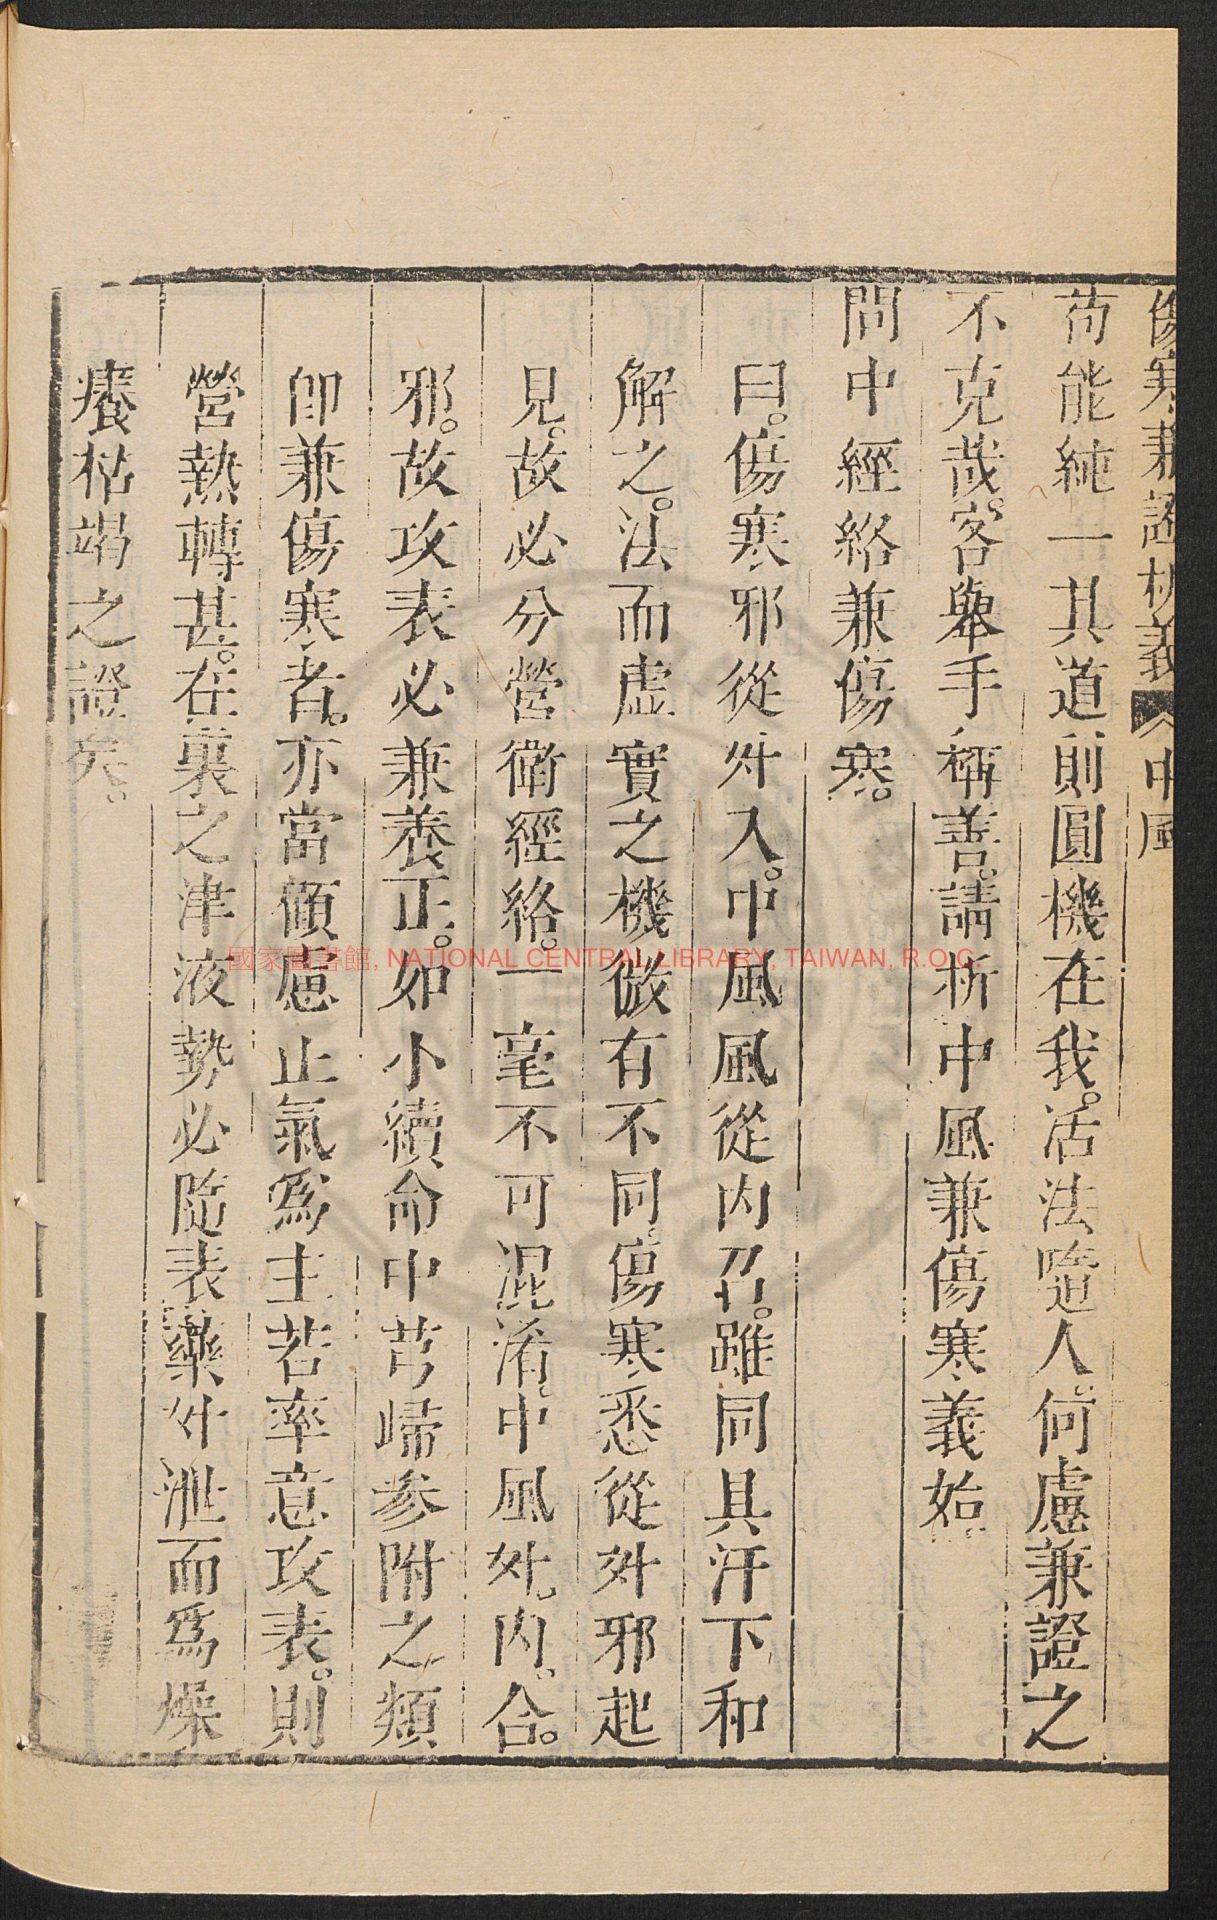 傷寒兼證析義 中風
苟能純一其道則圓機在我。活法隨人。何慮兼證之
不克哉。客舉手稱善。請析中風兼傷寒義始
問中經絡兼傷寒。
曰。傷寒邪從外入。中風風從內召。雖同具汗下和
解之。法而虛實之機微有不同。傷寒悉從外邪起
見。故必分營衛經絡。一毫不可混淆。中風外。內。合。
邪。故攻表必兼養正。如小續命中芎歸參附之類
即兼傷寒者。亦當傾慮止氣為主若率意攻表。則
營熱轉甚。在裏之津液勢必隨表藥外泄而為燥
癢枯竭之證矣。
國家圖書館, NATIONAL CENTRAL LIBRARY, TAIWAN, R.O.C